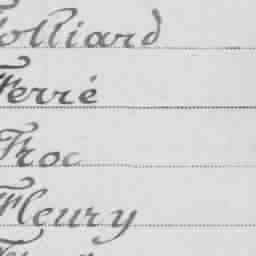 Folliard
Ferré
Froc
Fleury